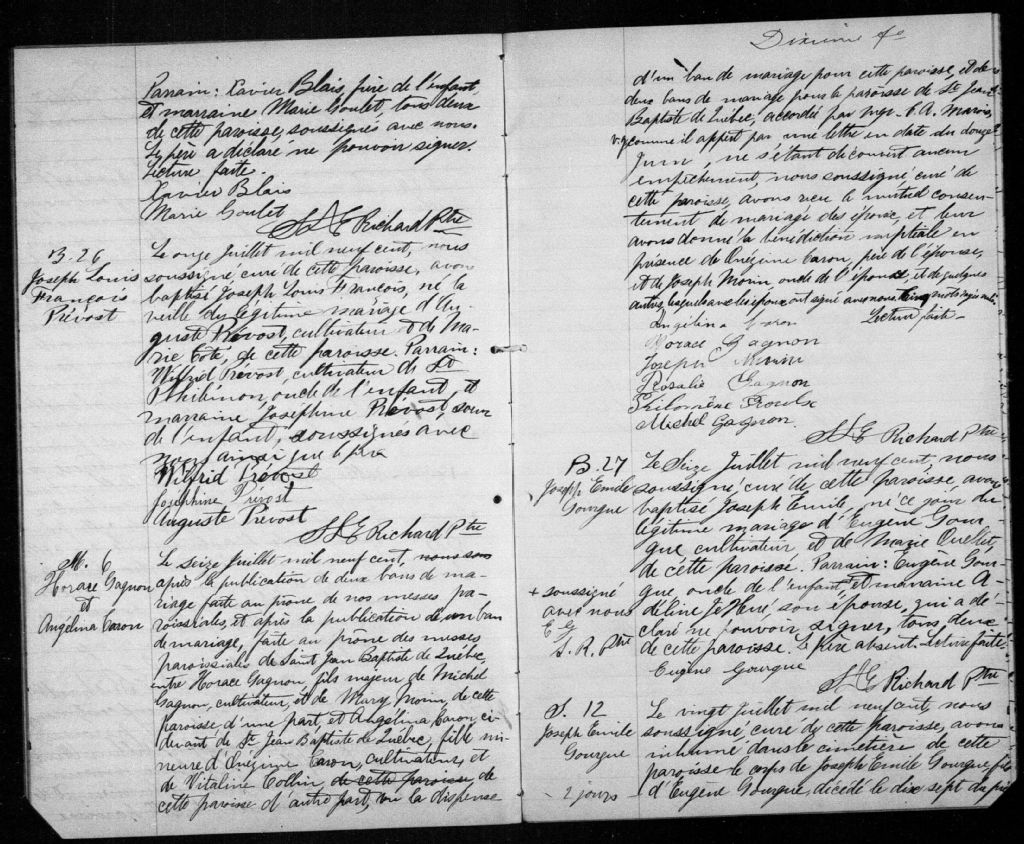 Parrain: Xavier Blais, frère de l'enfant,
et marraine Marie Goulet, tous deux
de cette paroisse, soussignés avec nous.
Le père a déclaré ne pouvoir signer.
Lecture faite.
Xavier Blais
Marie Goulet
Richard Ptre
B. 26
Joseph Louis
François
Prévost
Le onze Juillet mil neuf cent, nous
soussigné curé de cette paroisse, avons
baptisé Joseph Louis François, né la
veille du légitime mariage d'Au-
guste Prévost, cultivateur et de Ma-
rie Coté, de cette paroisse. Parrain:
Wilfrid Prévost, cultivateur de St
Philémon, oncle de l'enfant, et
marraine Joséphine Prévost, soeur
de l'enfant, soussignés avec
nous ainsi que le père
Wilfrid Prévost
Joséphine Prévost,
Auguste Prévost
Richard Ptre
M. 6
Horace Gagnon
et
Angélina Caron
Le seize Juillet mil neuf cent, nous sous
après la publication de deux bans de ma-
riage faite au prône de nos messes pa-
roissiales, et après la publication d'un ban
de mariage, faite au prône des messes
paroissiales de Saint Jean Baptiste de Québec,
entre Horace Gagnon fils majeur de Michel
Gagnon, cultivateur, et de Mary Morin, de cette
paroisse d'une part et Angélina Caron, ci-
devant de St Jean Baptiste de Québec, fille mi-
neure d'Onézime Caron, cultivateur, et
de Vitaline Collin de cette paroisse de
cette paroisse d'autre part, vu la dispense
Dixième fo
d'un ban de mariage pour cette paroisse, et de
deux bans de mariage pour la paroisse de St Jean
Baptiste de Québec, accordée par Mgr. C. A. Marois,
V.g. comme il appert par une lettre en date du douze
Juin, ne s'étant découvert aucun
empêchement, nous soussigné curé de
cette paroisse, avons reçu le mutuel consen-
tement de mariage des époux, et leur
avons donné la bénédiction nuptiale en
présence de Onézime Caron, père de l'épouse,
et de Joseph Morin, oncle de l'époux, et de quelques
autres, lesquels avec les époux, ont signé avec nous. Cinq mots rayés nuls.
Lecture faite -
Angélina Caron
Horace Gagnon
Joseph Morin
Rosalie Gagnon
Philomène Proulx
Michel Gagnon.
Richard Ptre
B. 27
Joseph Emile
Gourgue
Le Seize Juillet mil neuf cent, nous
soussigné curé de cette paroisse, avons
baptisé Joseph Emile, né ce jour du
légitime mariage d'Eugène Gour-
gue cultivateur, et de Marie Ouellet,
de cette paroisse. Parrain: Eugène Gour-
gue, oncle de l'enfant, et marraine A-
déline son épouse, qui a dé-
claré ne pouvoir signer, tous deux
de cette paroisse. Le père absent. Lecture faite.
+ soussigné
avec nous
E G
Ptre
Eugène Gourgue
Richard Ptre
S. 12
Joseph Emile
Gourgue
- 2 jours -
Le vingt Juillet mil neuf cent, nous
soussigné curé de cette paroisse, avons
inhumé dans le cimetière de cette
paroisse le corps de Joseph Emile Gourgue, fils
d'Eugène Gourgue, décédé le dix sept du